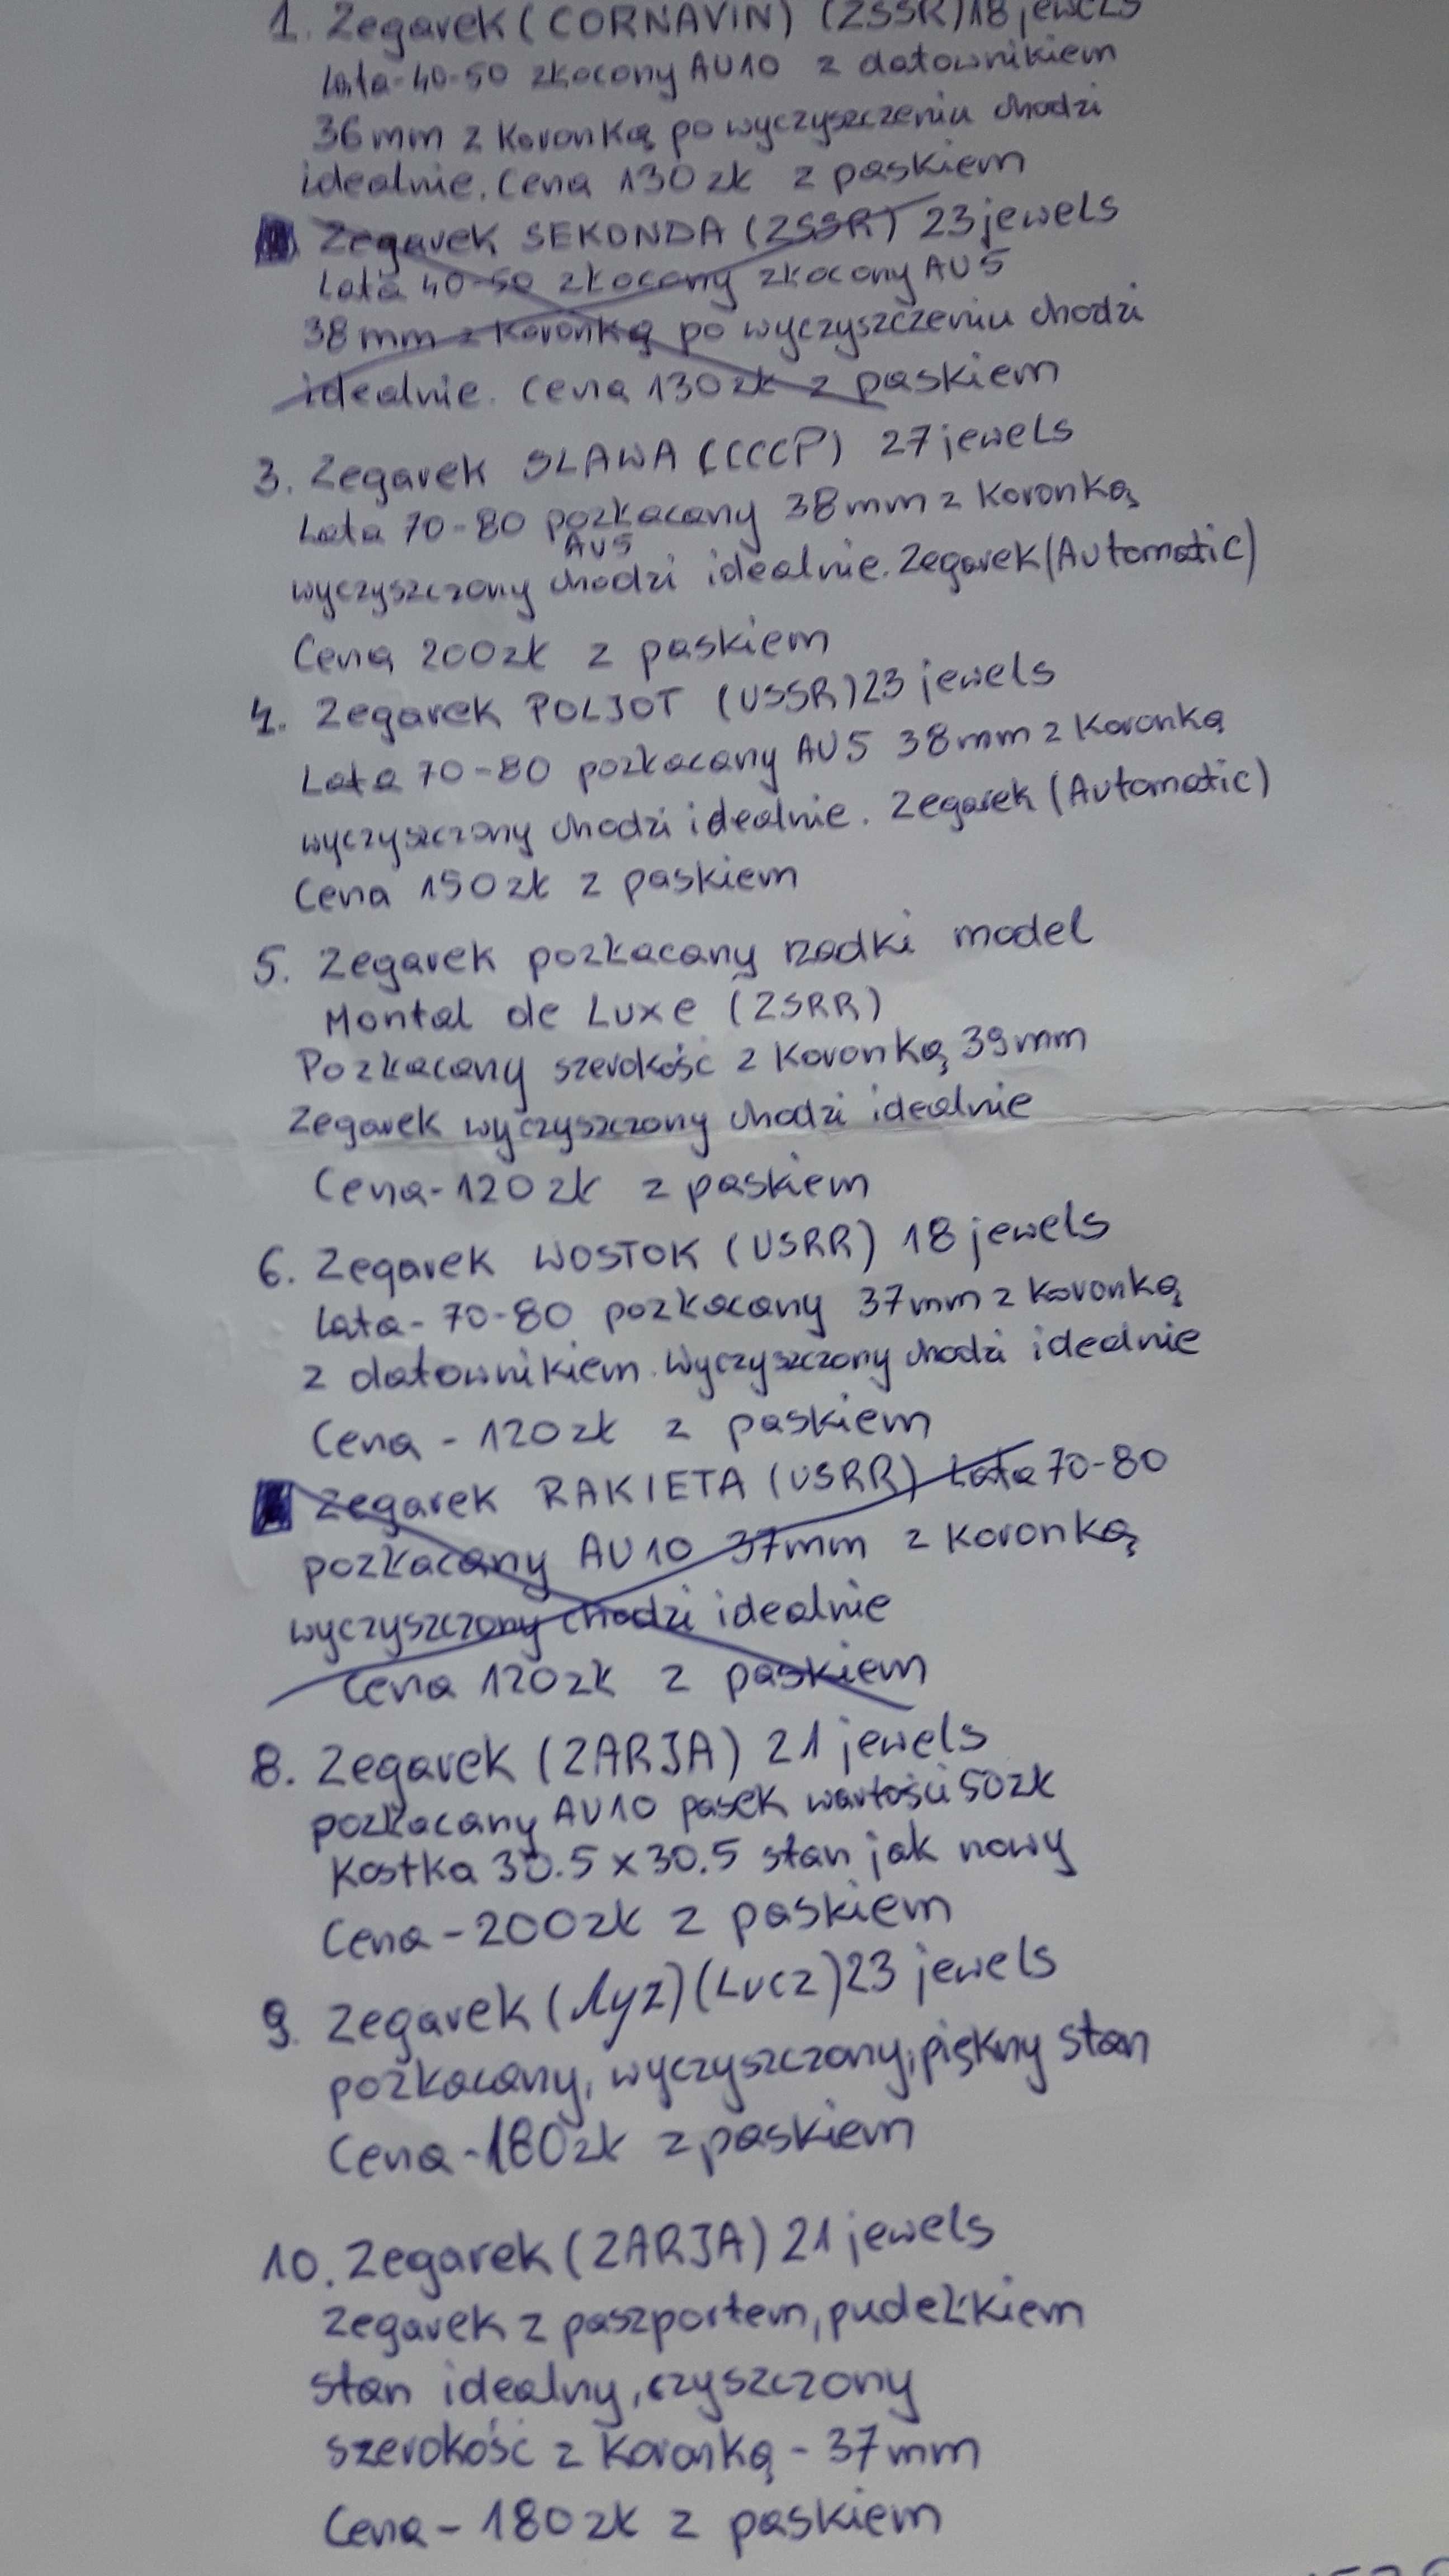 1. Zegarek (CORNAVIN) (ZSSR) 18 jewels
Lata-40-50 złocony AU10 z datownikiem
36mm z koronką po wyczyszczeniu chodzi
idealnie. Cena 130zł z paskiem
Zegarek SEKONDA (ZSSR) 23 jewels
Lata 40-50 złocony złocony AU5
38mm z koronką po wyczyszczeniu chodzi
idealnie. Cena 130zł z paskiem
3. Zegarek SLAWA (CCCP) 27 jewels
Lata 70-80 pozłacany 38mm z koronką
AU5
wyczyszczony chodzi idealnie. Zegarek (Automatic)
Cena 200zł z paskiem
4. Zegarek POLJOT (USSR) 23 jewels
Lata 70-80 pozłacany AU5 38mm z koronką
wyczyszczony chodzi idealnie. Zegarek (Automatic)
Cena 150zł z paskiem
5. Zegarek pozłacany rzadki model
Montal de Luxe (ZSRR)
Pozłacany szerokość z koronką 39mm
Zegarek wyczyszczony chodzi idealnie
Cena-120zł z paskiem
6. Zegarek WOSTOK (USRR) 18 jewels
Lata-70-80 pozłacany 37mm z koronką
z datownikiem. Wyczyszczony chodzi idealnie
Cena - 120zł z paskiem
Zegarek RAKIETA (USRR) Lata 70-80
pozłacany AU10 37mm z koronką
wyczyszczony chodzi idealnie
Cena 120zł z paskiem
8. Zegarek (ZARJA) 21 jewels
pozłacany AU10 pasek wartości 50zł
Kostka 30.5x30.5 stan jak nowy
Cena-200zł z paskiem
9. Zegarek (Луz) (Lucz) 23 jewels
pozłacany, wyczyszczony, piękny stan
Cena-180zł z paskiem
10. Zegarek (ZARJA) 21 jewels
Zegarek z paszportem, pudełkiem
stan idealny, czyszczony
szerokość z koronką - 37mm
Cena - 180zł z paskiem